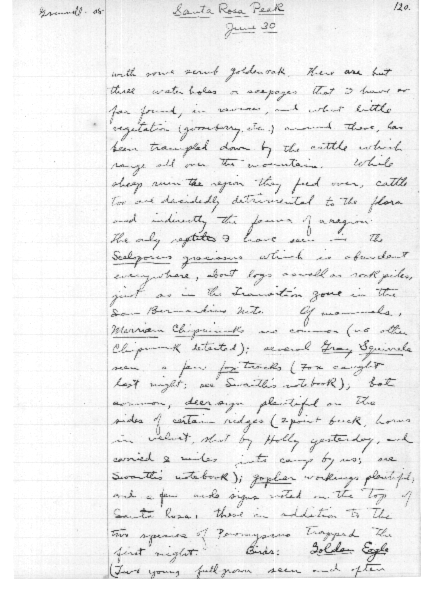 Grinnell - 08
Santa Rosa Peak
120.
June 30
with some scrub golden oak. There are but
three water holes or seepages that I have so
far found, in ravines, and what little
vegetation (gooseberry, etc.) around these, has
been trampled down by the cattle which
range all over the mountain. While
sheep ruin the region they feed over, cattle
too are decidedly detrimental to the flora
and indirectly the fauna of a region.
The only reptile I have seen is the
Sceloporus graciosus which is abundant
everywhere, about logs as well as rock piles,
just as in the Transition zone in the
San Bernardino Mts. Of mammals,
Merriam Chipmunks are common (no other
Chipmunk detected); several Gray Squirrels
seen, a few fox tracks (Fox caught
last night; see Swarth's notebook), bob
common, deer sign plentiful on the
sides of certain ridges (2 point buck, horns
in velvet, shot by Holly yesterday, and
carried 2 miles into camp by us; see
Swarth's notebook); gopher workings plentiful,
and a few mole signs noted on the top of
Santa Rosa; these in addition to the
two species of Peromyscus trapped the
first night. Birds: Golden Eagle
(Two young full grown seen and often